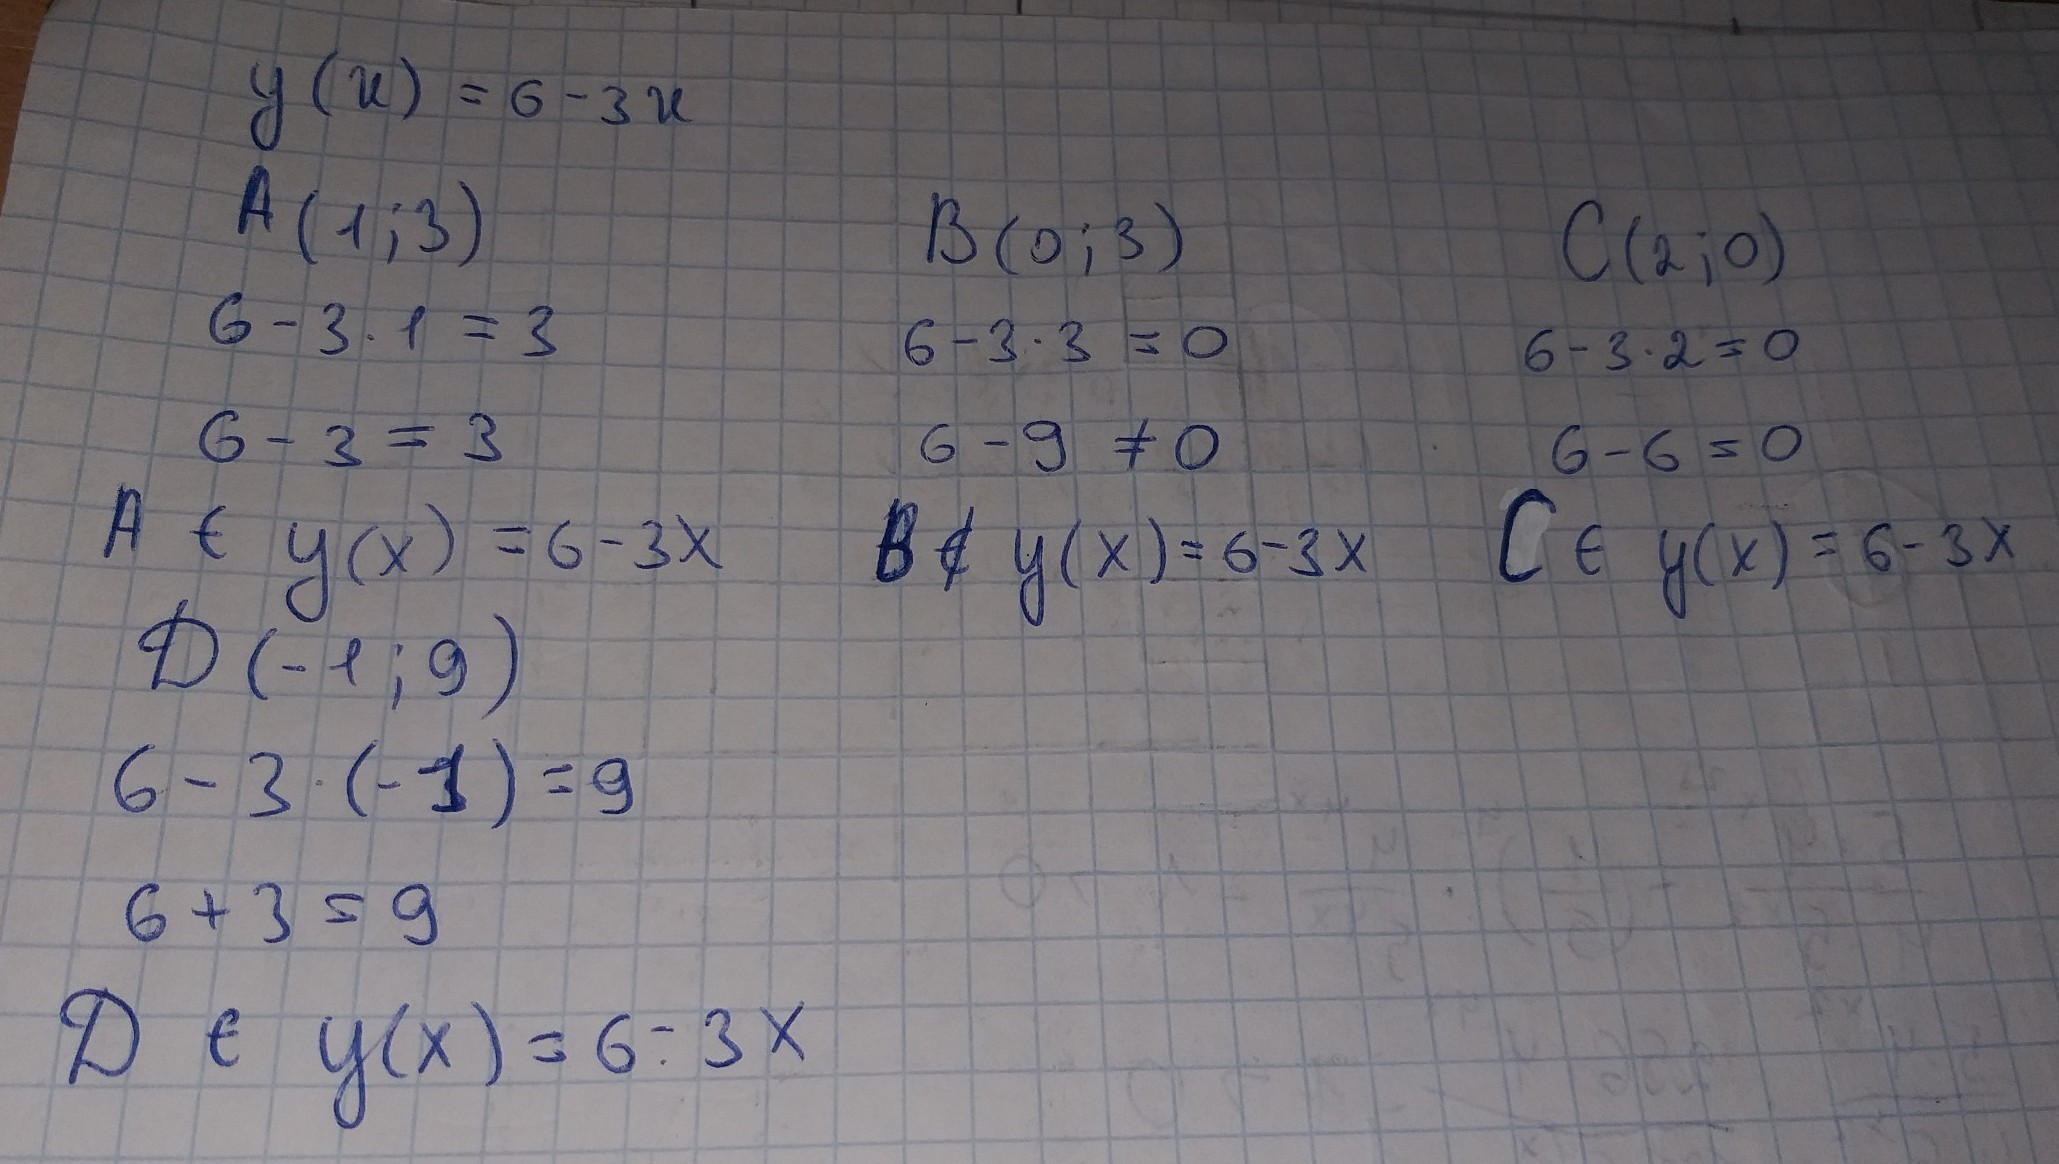 y(x) = 6 - 3x
A(1;3) B(0;3) C(2;0)
6 - 3 · 1 = 3 6 - 3 · 3 = 0 6 - 3 · 2 = 0
6 - 3 = 3 6 - 9 ≠ 0 6 - 6 = 0
A ∈ y(x) = 6 - 3x B ∉ y(x) = 6 - 3x C ∈ y(x) = 6 - 3x
D(-1;9)
6 - 3 · (-1) = 9
6 + 3 = 9
D ∈ y(x) = 6 - 3x